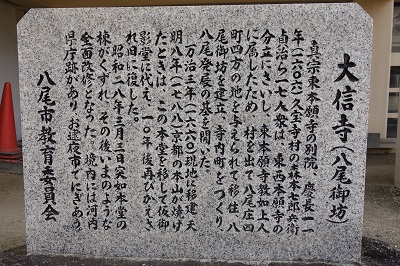 大信寺(八尾御坊)
真宗東本願寺の別院、慶長一一
年(一六〇六)久宝寺村の森本七郎兵衛
貞治ら一七人衆は、東西本願寺の
分立にさいし、東本願寺教如上人
に属したため、村を出て八尾庄四
町四方の地を与えられて移住、八
尾御坊を建立、寺内町をつくり、
八尾発展の基を開いた。
万治三年(一六六〇)現地に移建、天
明八年(一七八八)京都の本山が焼け
たときは、この本堂を移して仮御
影堂に代え、一〇年後再びかえさ
れ旧に復した。
昭和二八年三月三日突如本堂の
棟がくずれ、その後いまのような
全面改修となった。境内には河内
県庁跡があり、お逮夜市でにぎあう。
八尾市教育委員会